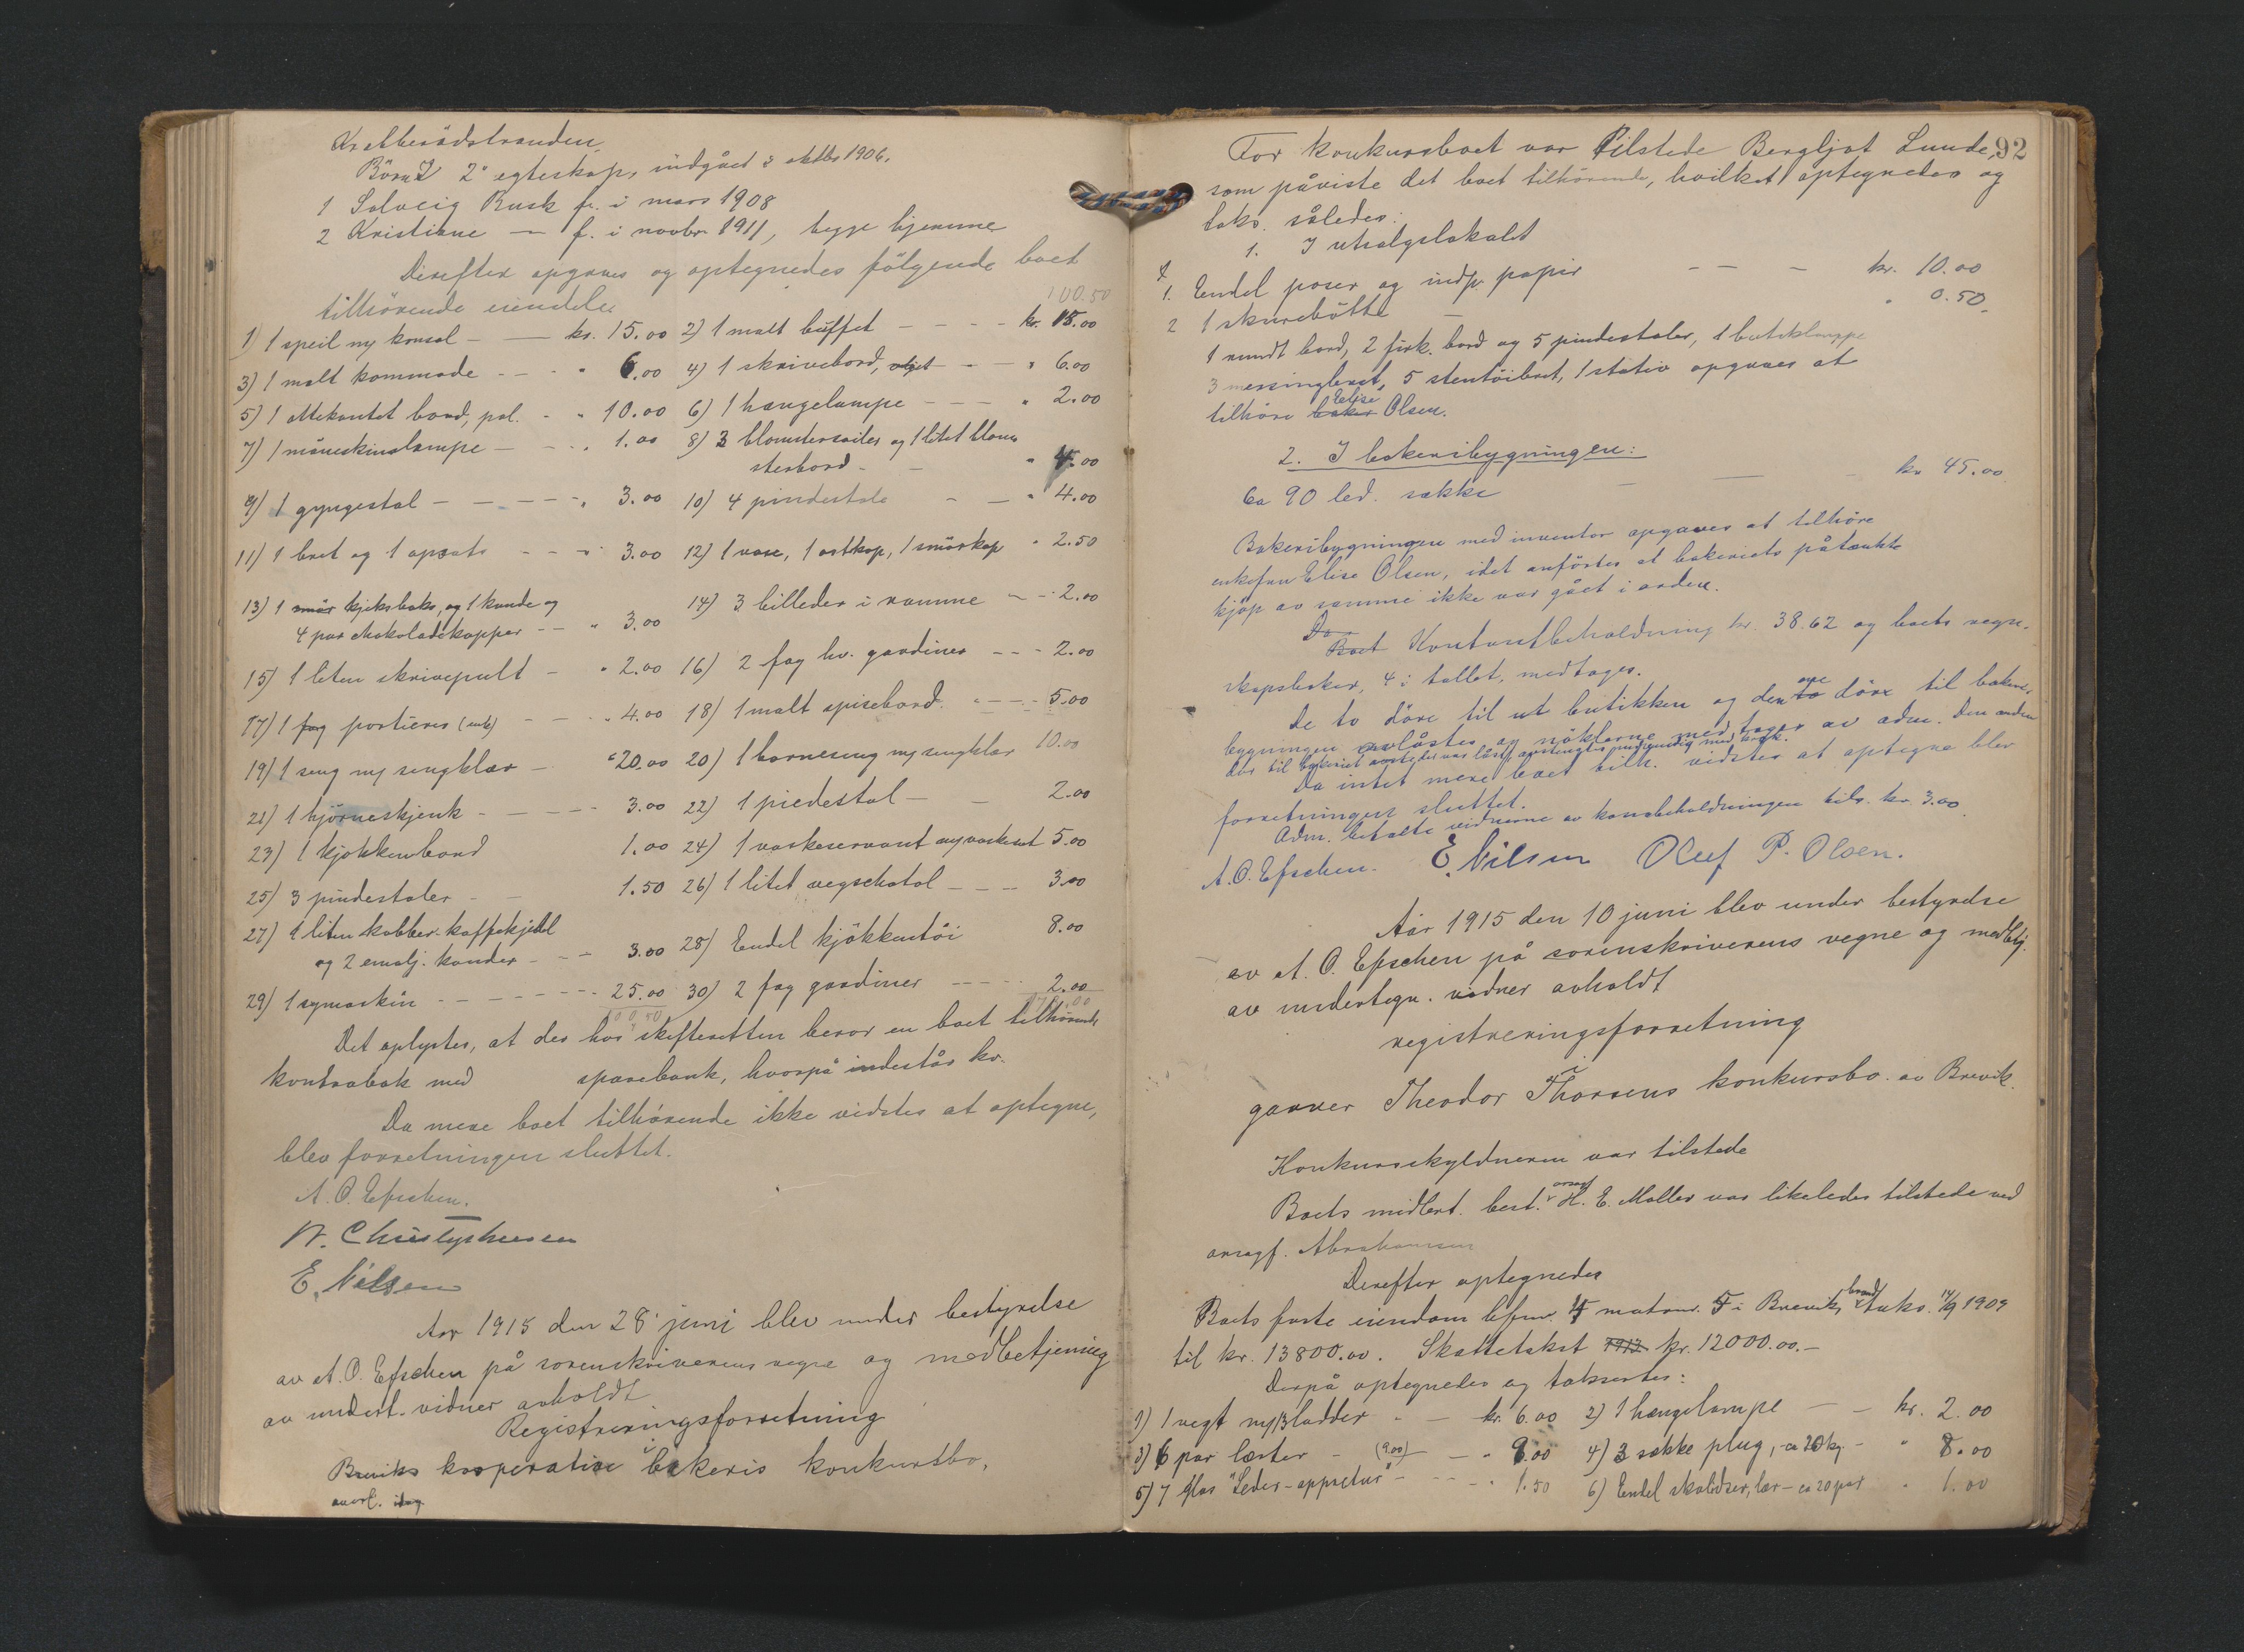 Krabberødstranden
Børn I 2' egteskap, indgået 3 oktbr 1906.
1 Solveig Rusk f. i mars 1908
2 Kristiane — f. i novbr 1911, begge hjemme
Derefter opgaves og optegnedes følgende boet
tilhörende eiendele
100.50
1) 1 speil m/ konsol - — kr. 15.00 2) 1 malt buffet - - - - kr. 15.00
3) 1 malt kommode - - - " 6.00 4) 1 skrivebord, - - " 6.00
5) 1 ottekantet bord, pol. - " 10.00 6) 1 hængelampe - - - " 2.00
7) 1 måneskinslampe - - - " 1.00 8) 3 blomstersøiler og 1 litet blom-
sterbord - - " 4.00
9) 1 gyngestol - - - - - " 3.00 10) 4 pindestole - - " 4.00
11) 1 bret og 1 opsats - - - " 3.00 12) 1 vase, 1 ostkop, 1 smörkop " 2.50
13) 1 smör kjeksboks, og 1 kande og
4 par chokoladekopper - - " 3.00 14) 3 billeder i ramme - - 2.00
15) 1 liten skrivepult - " 2.00 16) 2 fag hv. gardiner - - - 2.00
17) 1 fag portierer - - - " 4.00 18) 1 malt spisebord - - - 5.00
19) 1 seng m/ sengklær - " 20.00 20) 1 barneseng m/ sengklær 10.00
21) 1 hjörneskjenk - - - - 3.00 22) 1 piedestal - - 2.00
23) 1 kjökkenbord 1.00 24) 1 vaskeservant m/ vaskeset 5.00
25) 3 pindestoler - - 1.50 26) 1 litet vegschatol - - - 3.00
27) 1 liten kobber-kaffekjedel
og 2 emalj. kander - - - 3.00 28) Endel kjökkentöi 8.00
29) 1 symaskin - - - - - - - 25.00 30) 2 fag gardiner - - - - 2.00
100.50
Det oplystes, at der hos skifteretten beror en boet tilhörende
kontrabok med sparebank, hvorpå indestår kr.
Da mere boet tilhörende ikke vidstes at optegne,
blev forretningen sluttet.
A. O. Efschen.
N. Christophersen
E. Nilsen
Aar 1915 den 28' juni blev under bestyrelse
av A. O. Efschen på sorenskriverens vegne og medbetjening
av undert. vidner avholdt
Registreringsforretning
i
Breviks kooperative bakeris konkursbo,
overl. idag
92
For konkursboet var tilstede Bergljot Lunde,
som påviste det boet tilhörende, hvilket optegnedes og
taks. således:
1. I utsalgslokalet
1. Endel poser og indp. papir - - - kr. 10.00
2 1 skurebötte - " 0.50
1 rundt bord, 2 firk. bord og 5 pindestoler, 1 butiklampe
3 messingbret, 5 stentöibret, 1 stativ opgaves at
tilhöre baker Elise Olsen.
2. I bakeribygningen:
Ca 90 led. sække — — kr 45.00
Bakeribygningen med inventar opgaves at tilhöre
enkefru Elise Olsen, idet anförtes at bakeriets påtænkte
kjöp av samme ikke var gået i orden.
Da
Boet Kontantbeholdning kr. 38.62 og boets regn-
skapsböker, 4 i tallet, medtages.
De to döre til ut butikken og den ene to döre til bakeri-
bygningen avlåstes og nöklerne medtages av adm. Den anden
dör til bakeriet var låst
Da intet mere boet tilh. vidstes at optegne blev
forretningen sluttet.
Adm. betalte vidnerne av kassabeholdningen tils. kr. 3.00
A. O. Efschen. E. Nilsen Oluf P. Olsen.
Aar 1915 den 10 juni blev under bestyrelse
av A. O. Efschen på sorenskriverens vegne og medbetj.
av undertegn. vidner avholdt
registreringsforretning
i
garver Theodor Thorsens konkursbo av Brevik.
Konkursskyldneren var tilstede
Boets midlert. best. orsagf H. E. Møller var likeledes tilstede ved
orsagf. Abrahamsen
Derefter optegnedes
Boets faste eiendom löpnr. 4 matrnr. 5 i Brevik, brand taks. 14/9 1909
til kr. 13800.00. Skattetakst 1912 kr. 12000.00.-
Derpå optegnedes og taksertes:
1) 1 vegt m/3 lodder - - kr. 6.00 2) 1 hængelampe - - kr. 2.00
3) 6 par læster - (9.00) - " 9.00 4) 3 sække plug, - ca 20 kg - " 8.00
5) 7 glas "Leder-appretur" - - - " 1.50 6) Endel skolisser, lær - ca 20 par " 1.00